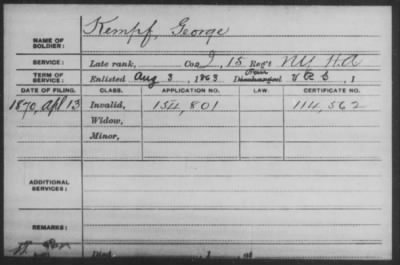 Kempf, George
NAME OF SOLDIER:
SERVICE: Late rank, Co. I, 15 Reg't N.Y. H.A.
TERM OF SERVICE: Enlisted Aug 3, 1863 Discharged , 1
DATE OF FILING. CLASS. APPLICATION NO. LAW. CERTIFICATE NO.
1870, Apl 13 Invalid, 154,801 114,562
Widow,
Minor,
ADDITIONAL SERVICES:
REMARKS:
Died , 1 , at